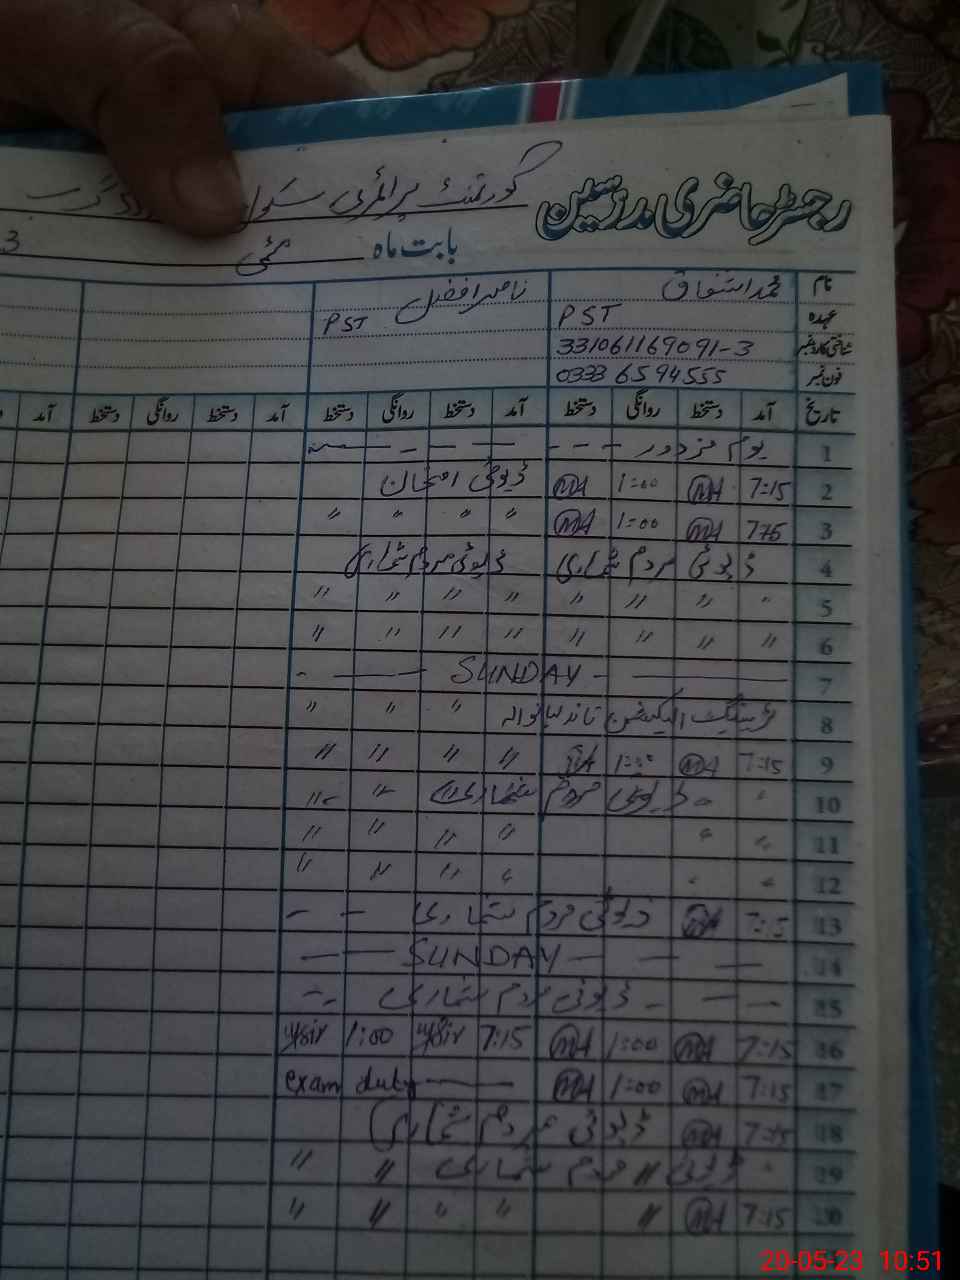 رجسٹر حاضری مدرسین گورنمنٹ پرائمری سکول
بابت ماہ مئی 3
نام محمد اشفاق ناصر افضل
عہدہ PST PST
شناختی کارڈ نمبر 331061169091-3
فون نمبر 0333 6594555
تاریخ آمد دستخط روانگی دستخط آمد دستخط روانگی دستخط آمد دستخط روانگی دستخط آمد
1 یوم مزدور
2 7:15 MA 1:00 MA ڈیوٹی امتحان
3 775 MA 1:00 MA " " " "
4 ڈیوٹی مردم شماری ڈیوٹی مردم شماری
5 " " " " " " " "
6 " " " " " " " "
7 SUNDAY
8 ٹریننگ الیکشن تاندلیانوالہ " " "
9 7:15 MA 1:00 MA " " " "
10 " " ڈیوٹی مردم شماری " "
11 " " " " " "
12 " " " " " "
13 7:15 MA ڈیوٹی مردم شماری
14 SUNDAY
15 ڈیوٹی مردم شماری
16 7:15 MA 1:00 MA 7:15 1:00
17 7:15 MA 1:00 MA exam duty
18 7:15 MA ڈیوٹی مردم شماری
19 " ڈیوٹی مردم شماری " "
20 7:15 MA " " " " "
20-05-23 10:51